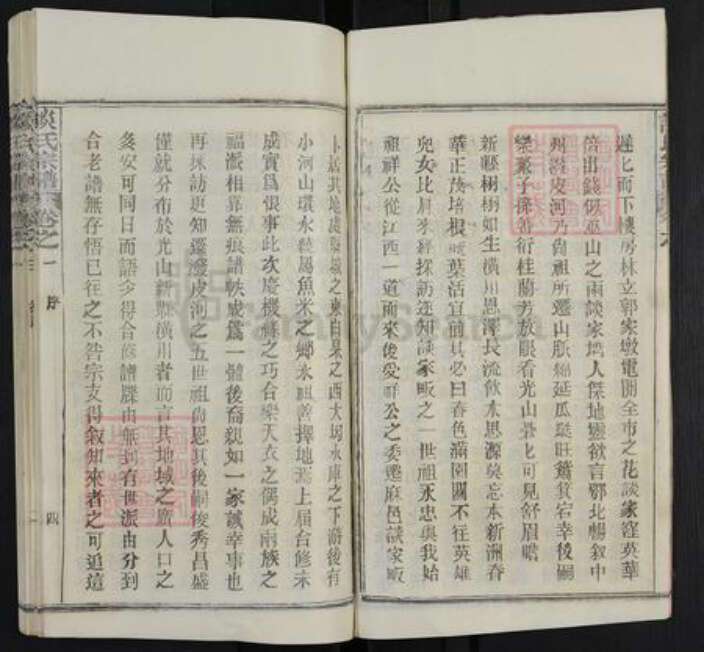 遞匕而下樓房林立郭家墩電開全市之花談家窪英華
倍出錢似巫山之雨談家塆人傑地靈欲言鄂北暢叙中
州潑皮河乃尚祖所遷山脈綿延瓜瓞旺鴬箕宕幸後嗣
榮蕃子孫善衍桂蘭芳放眼看光山曇匕可見舒眉瞻
新縣栩栩如生橫川思澤長流飲水思源莫忘本新洲春
華正茂培根敗葉活宜前其必曰春色滿園關不住英雄
兒女比肩來經採訪迷知談家畈之一世祖永忠與我始
祖祥公從江西一道而來後受祥公之委遷麻邑談家畈
卜居其地處縣城之東白杲之西大坳水庫之下游後有
小河山環水繞屬魚米之鄉永祖善擇地焉上屆台修未
成實爲恨事此次慶機緣之巧合樂天衣之偶成兩族之
福派相靠無痕譜帙成爲一體後裔親如一家誠幸事也
再採訪更知遷潑皮河之五世祖尚恩其後嗣俊秀昌盛
僅就分布於光山新縣橫川者而言其地域之廣人口之
多安可同日而語今得合修譜牒由無到有世派由分到
合老譜無存悟已往之不咎宗支得叙知來者之可追這
談氏宗譜
卷之一
序
四
FamilySearch